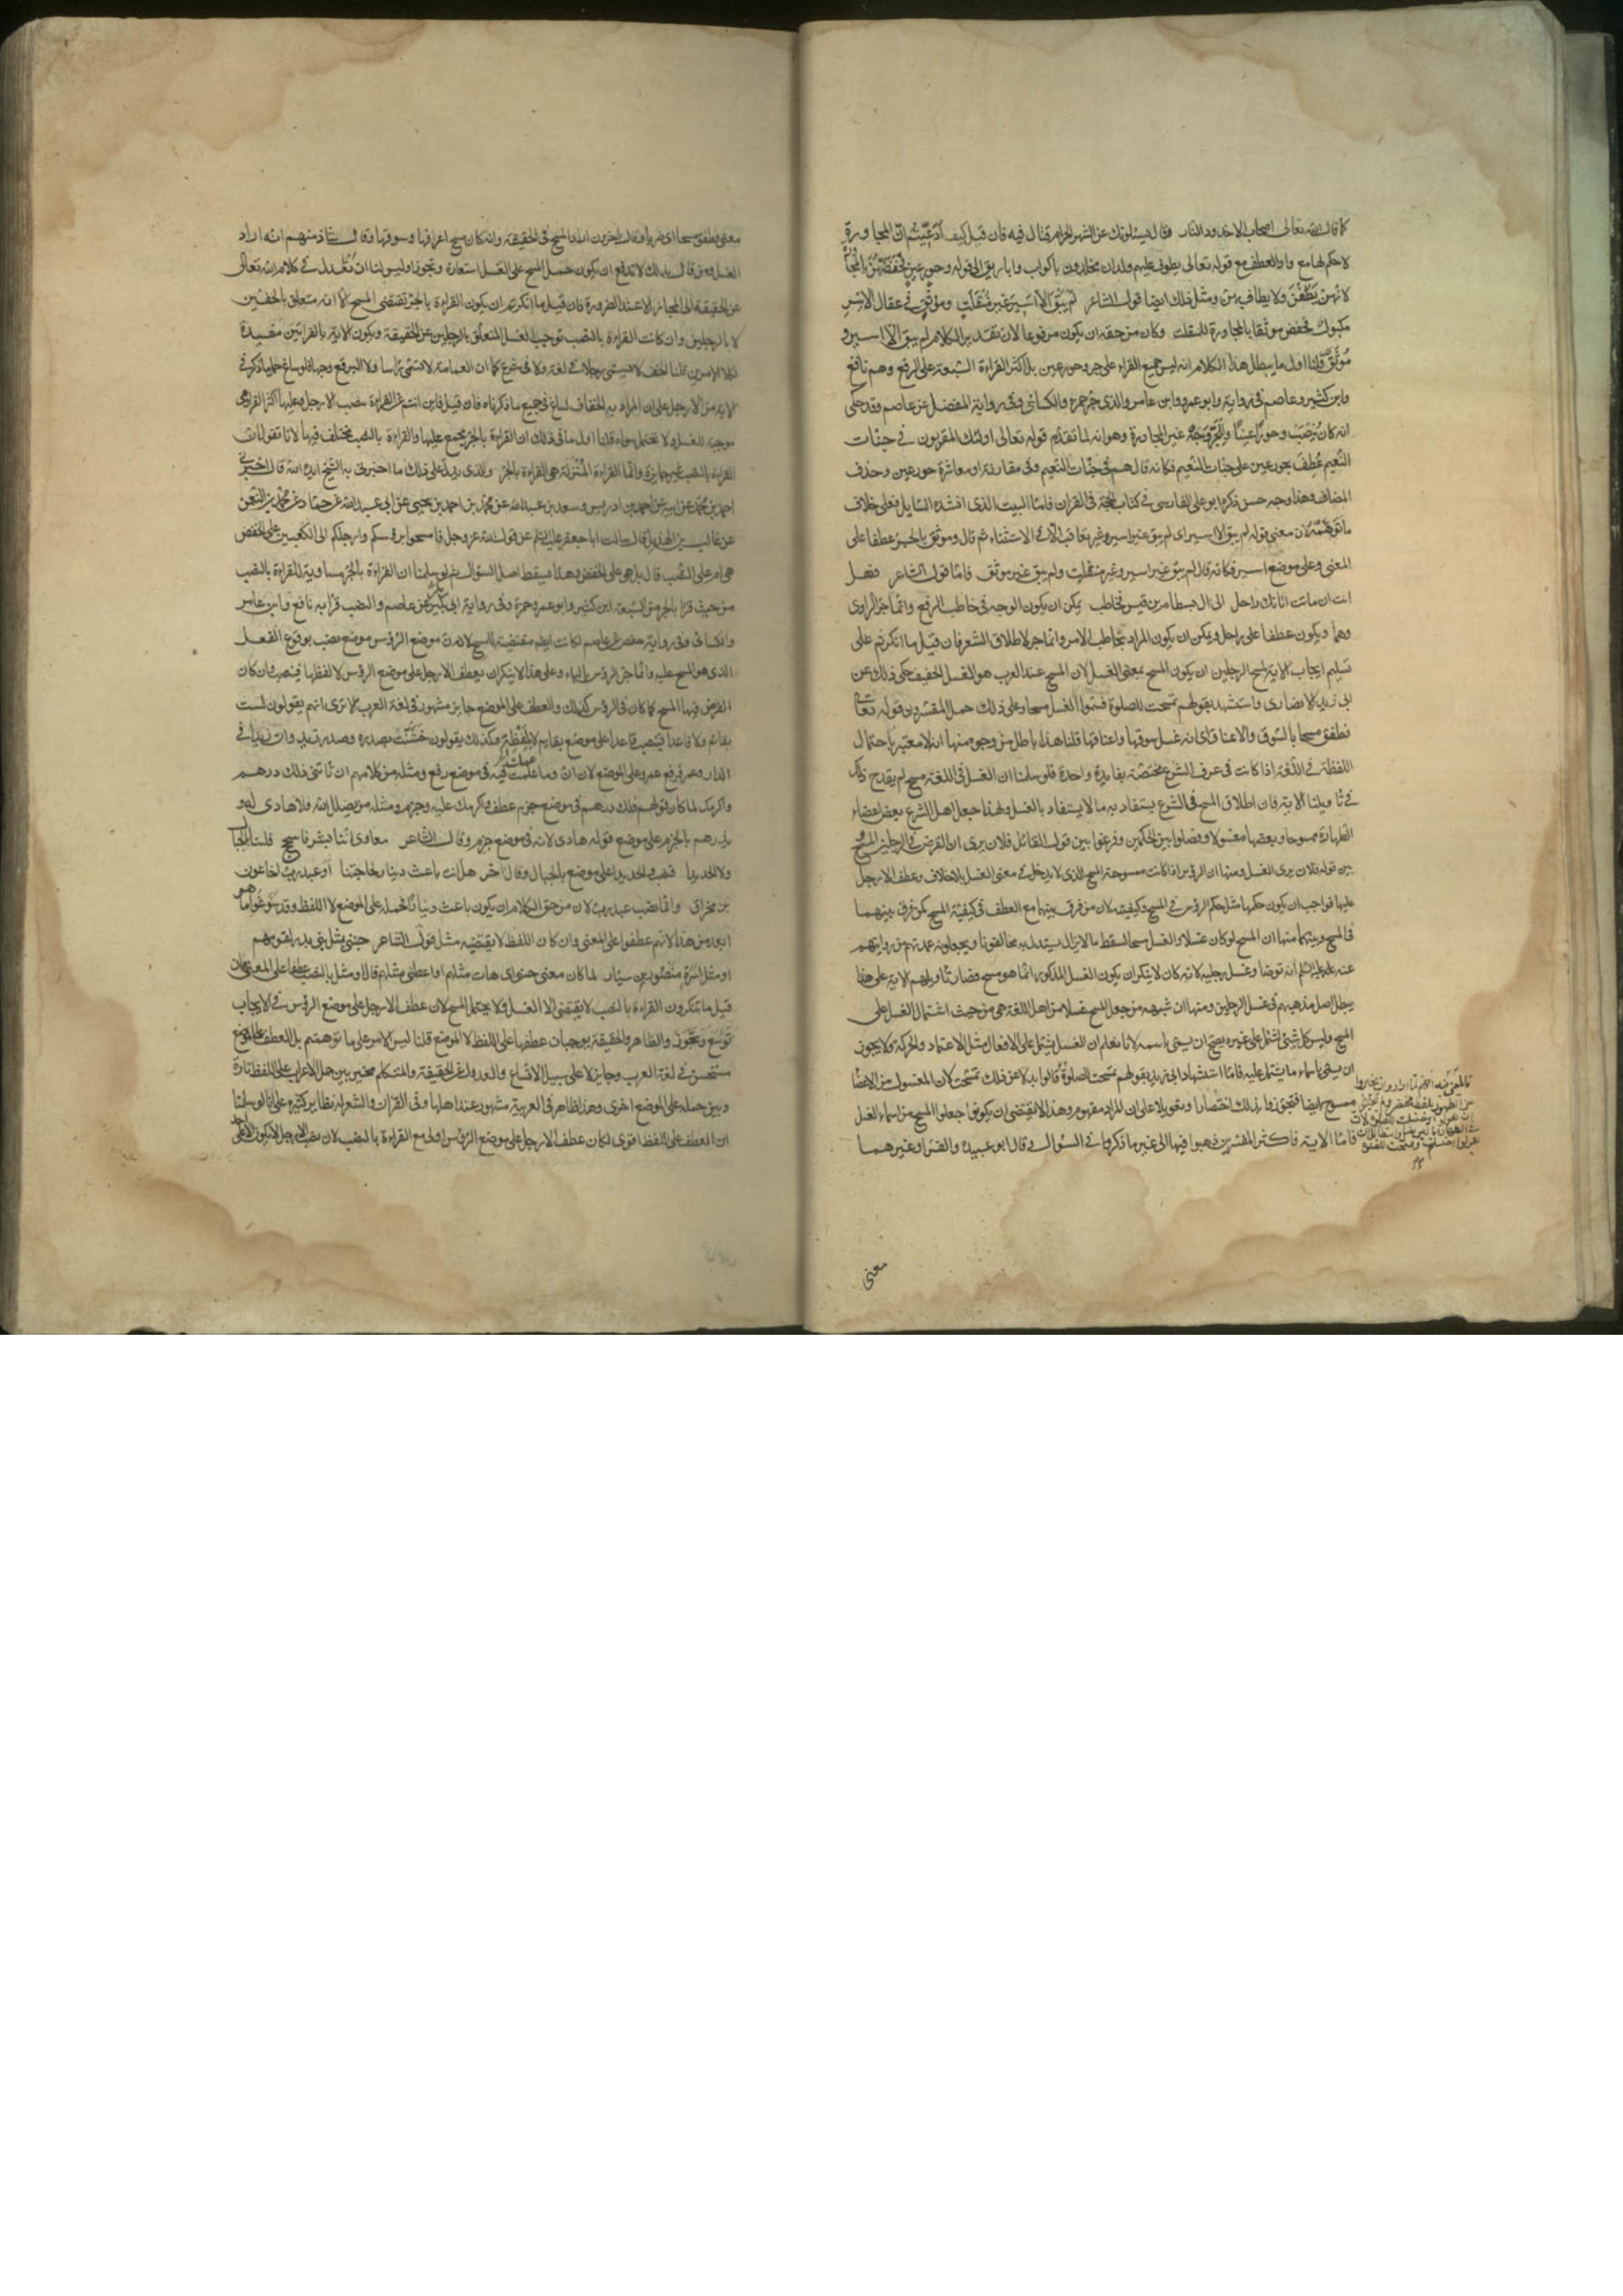 كما قال الله تعالى اصحاب الاخدود النار وقال يسئلونك عن الشهر الحرام قتال فيه فان قيل كيف ادعيتم ان المجاورة
لا حكم لها مع واو العطف مع قوله تعالى يطوف عليهم ولدان مخلدون باكواب واباريق الى قوله وحور عين فخفضهن بالمجاورة
لانهن يطفن ولا يطاف بهن ومثل ذلك ايضا قول الشاعر لم يبق الا اسير غير منفلت وموثق في عقال الاسر
مكبول فخفض موثقا بالمجاورة للمنفلت وكان من حقه ان يكون مرفوعا لان تقدير الكلام لم يبق الا اسير و
موثق قلنا اول ما يبطل هذا الكلام انه ليس جميع القراء على جر وحور عين بل اكثر القراءة السبعة على الرفع وهم نافع
وابن كثير وعاصم في رواية وابو عمرو وابن عامر والذي جر حمزة والكسائي وفي رواية المفضل عن عاصم وقد حكى
انه كان ينصب وحورا عينا وللجر وجه غير المجاورة وهو انه لما تقدم قوله تعالى اولئك المقربون في جنات
النعيم عطف بحور عين على جنات النعيم فكانه قال هم في جنات النعيم وفي مقارنة او معاشرة حور عين وحذف
المضاف وهذا وجه حسن ذكره ابو علي الفارسي في كتاب الحجة في القران فاما البيت الذي انشده السايل فعلى خلاف
ما توهمه لان معنى قوله لم يبق الا اسير اي لم يبق غير اسير وغير تعاقب الا في الاستثناء ثم قال وموثق بالجر عطفا على
المعنى وعلى موضع اسير فكانه قال لم يبق غير اسير وغير منفلت ولم يبق غير موثق فاما قول الشاعر فهل
انت ان ماتت اتانك راحل الى ال بسطام بن قيس فخاطب يمكن ان يكون الوجه في خاطب الرفع وانما جر الراوي
وهما ويكون عطفا على راحل ويمكن ان يكون المراد فخاطب الامر وانما جر لاطلاق الشعر فان قيل ما انكرتم على
تسليم ايجاب الاية لمسح الرجلين ان يكون المسح بمعنى الغسل لان المسح عند العرب هو الغسل الخفيف حكى ذلك عن
ابي زيد الانصاري واستشهد بقولهم تمسحت للصلوة فسموا الغسل مسحا وعلى ذلك حمل المفسرون قوله تعالى
فطفق مسحا بالسوق والاعناق اي انه غسل سوقها واعناقها قلنا هذا باطل من وجوه منها انه لا معتبر باحتمال
اللفظة في اللغة اذا كانت في عرف الشرع مختصة بفايدة واحدة فلو سلمنا ان الغسل في اللغة مسح لم يقدح ذلك
في تاويلنا الاية فان اطلاق المسح في الشرع يستفاد به ما لا يستفاد بالغسل ولهذا جعل اهل الشرع بعض اعضاء
الطهارة ممسوحا وبعضها مغسولا وفصلوا بين الحكمين وفرقوا بين قول القائل فلان يرى ان الفرض في الرجلين المسح و
بين قوله فلان يرى الغسل ومنها ان الرؤس اذا كانت ممسوحة المسح الذي لا يدخل في معنى الغسل بلا خلاف وعطف الارجل
عليها فواجب ان يكون حكمها مثل حكم الرؤس في المسح وكيفيته لان من فرق بينهما مع العطف في كيفية المسح كمن فرق بينهما
في المسح ومنها ان المسح لو كان غسلا والغسل مسحا لسقط ما لا يزال يستدل به مخالفونا ويجعلونه عمدتهم من روايتهم
عنه عليه السلم انه توضا وغسل رجليه لانه كان لا ينكر ان يكون الغسل المذكور انما هو مسح فصار تاويلهم الاية على هذا
يبطل اصل مذهبهم في غسل الرجلين ومنها ان شبهة من جعل المسح غسلا من اهل اللغة هي من حيث اشتمال الغسل على
المسح وليس كل شئ اشتمل على غيره يصح ان يسمى باسمه لانا نعلم ان الغسل يشتمل على الافعال مثل الاعتماد والحركة ولا يجوز
ان يسمى باسماء ما يشتمل عليه فاما استشهاد ابي زيد بقولهم تمسحت للصلوة
ممسوح ايضا فتجوزوا بذلك اختصارا وتعويلا على ان المراد مفهوم وهذا لا يقتضي ان يكونوا جعلوا المسح من اسماء الغسل
فاما الاية فاكثر المفسرين ذهبوا فيها الى غير ما ذكروا في السؤال وقال ابو عبيدة والفراء وغيرهما
معنى
معنى فطفق مسحا اي ضربا وقال اخرون اراد المسح في الحقيقة وانه كان مسح اعرافها وسوقها وقال شاذ منهم انه اراد
الغسل ومن قال بذلك لا يدفع ان يكون حمل المسح على الغسل استعارة وتجوزا وليس لنا ان نعدل في كلام الله تعالى
عن الحقيقة الى المجاز الا عند الضرورة فان قيل ما انكرتم ان يكون القراءة بالجر تقتضي المسح الا انه متعلق بالخفين
لا بالرجلين وان كانت القراءة بالنصب توجب الغسل المتعلق بالرجلين عن الحقيقة ويكون الاية بالقرائتين مفيدة
لكلا الامرين قلنا الخف لا يسمى رجلا في لغة ولا في شرع كما ان العمامة لا تسمى راسا ولا البرقع وجها فلو ساغ حمل ما ذكر في
الاية من الارجل على ان المراد به الخفاف لساغ في جميع ما ذكرناه فان قيل فاين انتم عن القراءة بنصب الارجل وعليها اكثر القراء وهي
موجبة للغسل ولا يحتمل سواه قلنا اول ما في ذلك ان القراءة بالجر مجمع عليها والقراءة بالنصب مختلف فيها لانا نقول ان
القراءة بالنصب غير جايزة وانما القراءة المنزلة هي القراءة بالجر والذي يدل على ذلك ما اخبرني به الشيخ ايده الله قال اخبرني
احمد بن محمد عن ابيه عن احمد بن ادريس وسعد بن عبد الله عن محمد بن احمد بن يحيى عن ابي عبد الله عن حماد عن محمد بن النعمن
عن غالب بن الهذيل قال سالت ابا جعفر عليه السلم عن قول الله عز وجل فامسحوا برؤسكم وارجلكم الى الكعبين على الخفض
هي ام على النصب قال بل هي على الخفض وهذا يسقط اصل السؤال ثم لو سلمنا ان القراءة بالجر مساوية للقراءة بالنصب
من حيث قرا بالجر من السبعة ابن كثير وابو عمرو وحمزة وفي رواية ابي بكر عن عاصم والنصب قرا به نافع وابن عامر
والكسائي وفي رواية حفص عن عاصم لكانت ايضا مقتضية للمسح لان موضع الرؤس موضع نصب بوقوع الفعل
الذي هو المسح عليه وانما جر الرؤس بالباء وعلى هذا لا ينكر ان يعطف الارجل على موضع الرؤس لا لفظها فينصب وان كان
الفرض فيها المسح كما كان في الرؤس كذلك والعطف على الموضع جايز مشهور في لغة العرب الا ترى انهم يقولون لست
بقائم ولا قاعدا فينصب قاعدا على موضع بقايم لا لفظه وكذلك يقولون خشنت بصدره وصدر زيد وان زيدا في
الدار وعمرو فرفع عمرو على الموضع لان ان وما عملت فيه في موضع رفع ومثله من كلامهم ان تاتني فلك درهم
واكرمك لما كان قولهم فلك درهم في موضع جزم عطف واكرمك عليه وجزم ومثله من يضلل الله فلا هادي له و
يذرهم بالجزم على موضع قوله هادي لانه في موضع جزم وقال الشاعر معاوي اننا بشر فاسجح فلسنا بالجبال
ولا الحديدا فنصب الحديد على موضع بالجبال وقال اخر هل انت باعث دينار لحاجتنا او عبد رب اخا عون
بن مخراق وانما نصب عبد رب لان من حق الكلام ان يكون باعث دينارا فحمله على الموضع لا اللفظ وقد سوغوا ما هو
ابعد من هذا لانهم عطفوا على المعنى وان كان اللفظ لا يقتضيه مثل قول الشاعر جئني بمثل بني بدر لقومهم
او مثل اسرة منظور بن سيار لما كان معنى جئني اي هات مثلهم او اعطني مثلهم قال او مثل بالنصب عطفا على المعنى فان
قيل ما تنكرون القراءة بالنصب لا يقتضي الا الغسل ولا يحتمل المسح لان عطف الارجل على موضع الرؤس في الايجاب
توسع وتجوز والظاهر والحقيقة يوجبان عطفها على اللفظ لا الموضع قلنا ليس الامر على ما توهمتم بل العطف على الموضع
مستحسن في لغة العرب وجايز لا على سبيل الاتساع والعدول عن الحقيقة والمتكلم مخير بين حمل الاعراب على اللفظ تارة
وبين حمله على الموضع اخرى وهذا ظاهر في العربية مشهور عند اهلها وفي القران والشعر له نظاير كثيرة على انا لو سلمنا
ان العطف على اللفظ اقوى لكان عطف الارجل على موضع الرؤس اولى مع القراءة بالنصب لان نصب الارجل لا يكون الا على